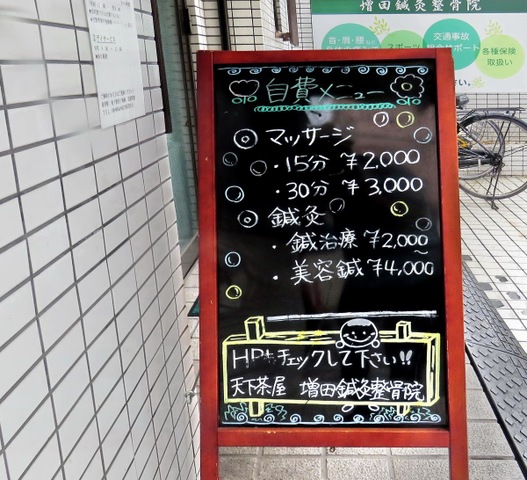 増田鍼灸整骨院
首・肩・腰など
スポーツ
交通事故
サポート
各種保険
取扱い
自費メニュー
マッサージ
・15分 ¥2,000
・30分 ¥3,000
鍼灸
・鍼治療 ¥2,000〜
・美容鍼 ¥4,000
HPもチェックして下さい!!
天下茶屋 増田鍼灸整骨院